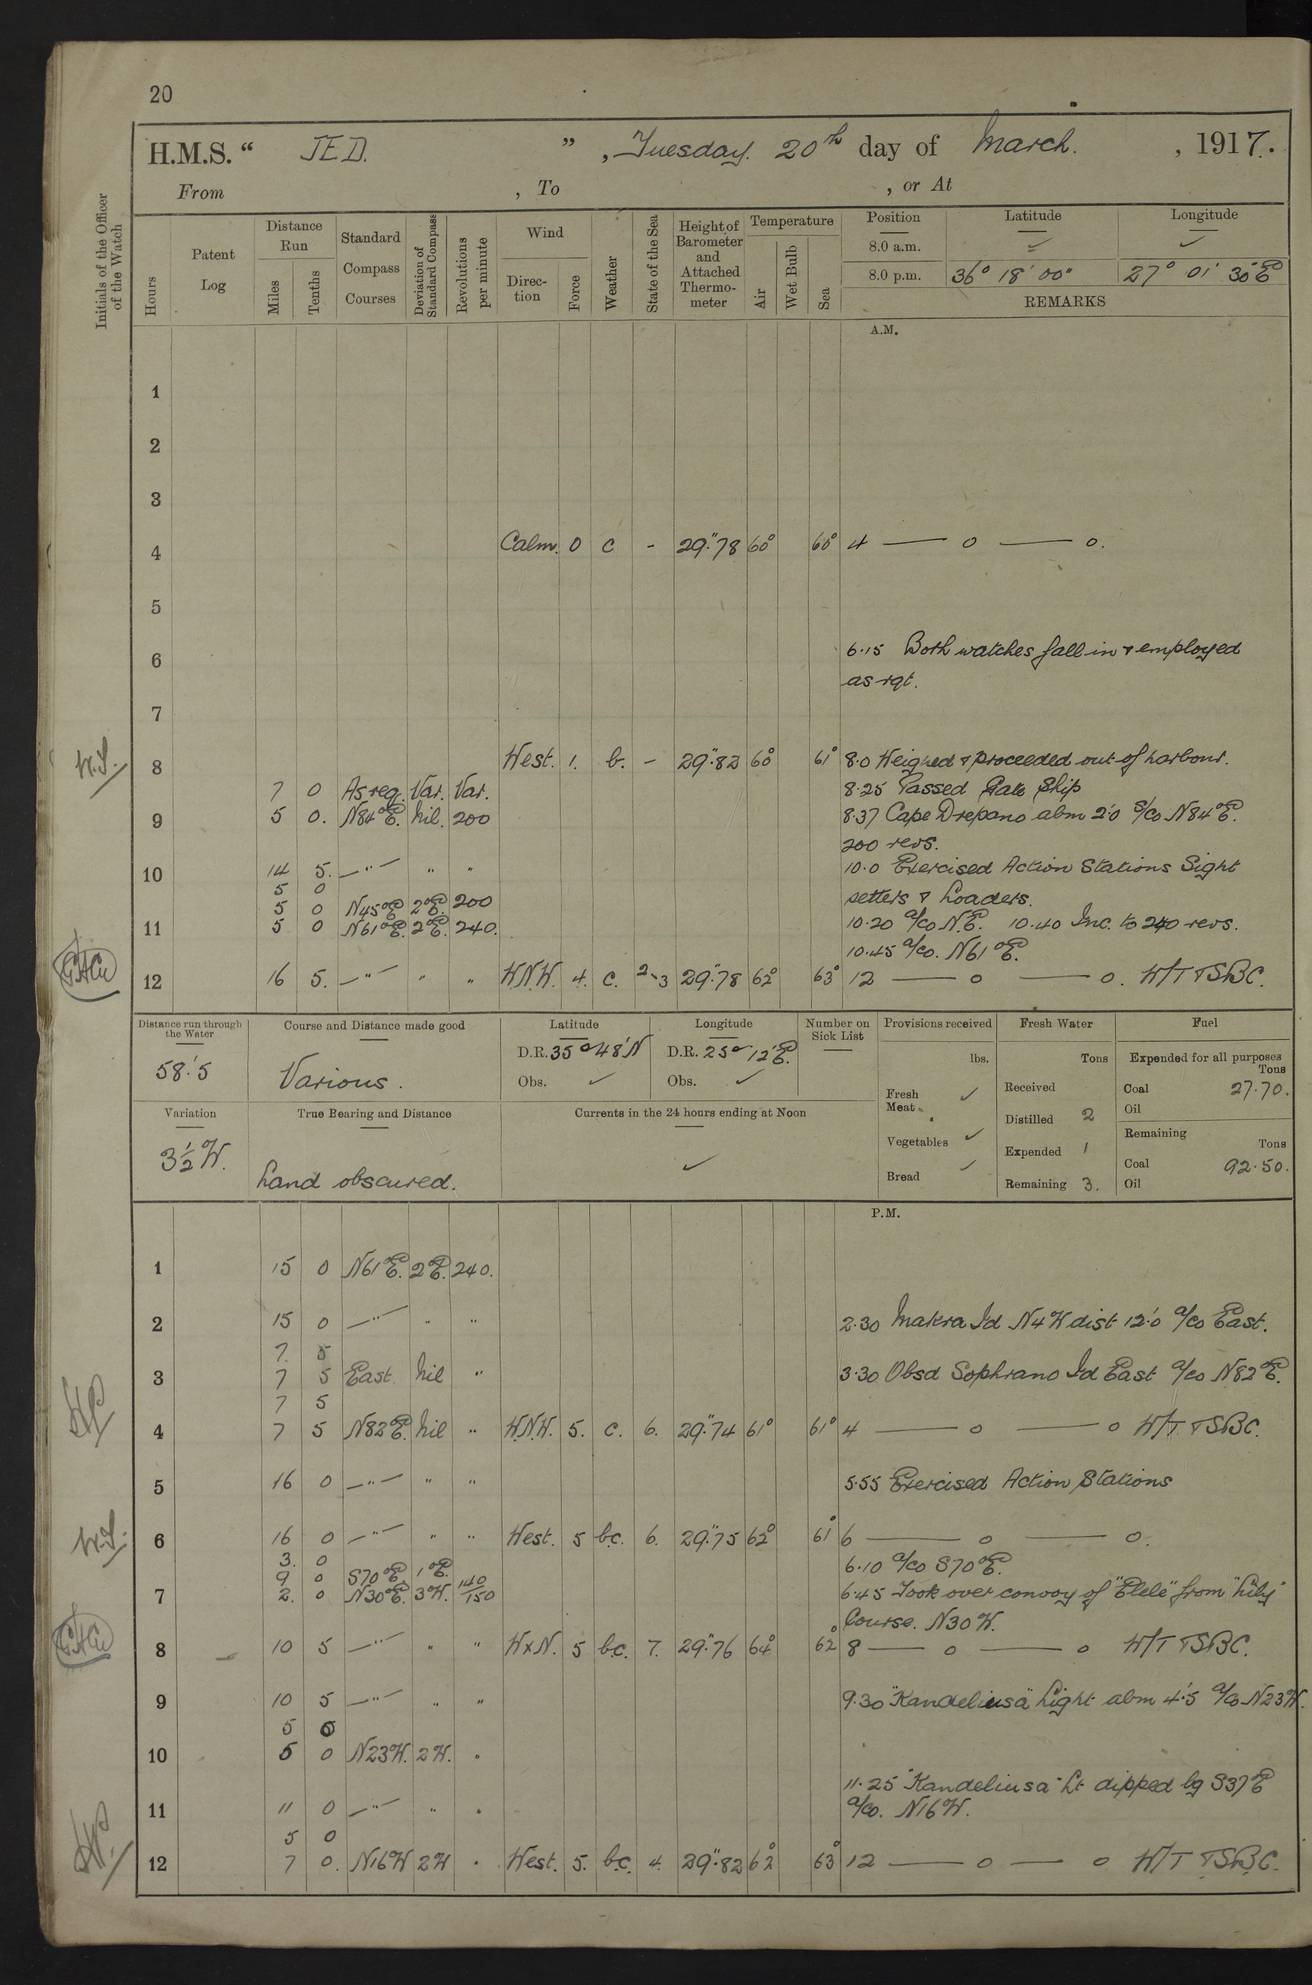 20
H.M.S. “ JED. ” , Tuesday. 20th day of March. , 1917.
From , To , or At
Initials of the Officer of the Watch
Hours
Patent Log
Distance Run
Miles
Tenths
Standard Compass Courses
Deviation of Standard Compass
Revolutions per minute
Wind
Direction
Force
Weather
State of the Sea
Height of Barometer and Attached Thermometer
Temperature
Air
Wet Bulb
Sea
Position Latitude Longitude
8.0 a.m. ✓ ✓
8.0 p.m. 36° 18' 00" 27° 01' 30" E
REMARKS
A.M.
1
2
3
4 Calm. 0 c - 29".78 60° 60° 4 — o — o.
5
6 6.15 Both watches fall in & employed
as rqt.
7
8 West. 1. b. - 29".82 60° 61° 8.0 Weighed & proceeded out of harbour.
7 0 As req. Var. Var. 8.25 Passed Gate Ship
9 5 0. N84°E. Nil. 200 8.37 Cape Drepano abm 2'.0 S/Co N84°E.
200 revs.
10 14 5. —"— " " 10.0 Exercised Action Stations Sight
5 0 setters & Loaders.
5 0 N45°E 2°E. 200
11 5 0 N61°E. 2°E. 240. 10.20 a/co N.E. 10.40 Inc. to 240 revs.
10.45 a/co. N61°E.
12 16 5. —"— " " W.N.W. 4. c. 2-3 29".78 62° 63° 12 — o — o. W/T & SBC.
Distance run through the Water
58'.5
Course and Distance made good
Various.
Latitude
D.R. 35° 48' N
Obs. ✓
Longitude
D.R. 25° 12' E.
Obs. ✓
Number on Sick List
Provisions received
lbs.
Fresh Meat ✓
Vegetables ✓
Bread ✓
Fresh Water
Tons
Received
Distilled 2
Expended 1
Remaining 3.
Fuel
Expended for all purposes
Tons
Coal 27.70.
Oil
Remaining
Tons
Coal 92.50.
Oil
Variation
3½ W.
True Bearing and Distance
Land obscured.
Currents in the 24 hours ending at Noon
✓
P.M.
1 15 0 N61°E. 2°E. 240.
2 15 0 —"— " " 2.30 Makra Id N4W dist 12'.0 a/co East.
7. 5
3 7 5 East. Nil " 3.30 Obsd Sophrano Id East a/co N82°E.
7 5
4 7 5 N82°E. Nil " W.N.W. 5. c. 6. 29".74 61° 61° 4 — o — o W/T & SBC.
5 16 0 —"— " " 5.55 Exercised Action Stations
6 16 0 —"— " " West. 5 b.c. 6. 29".75 62° 61° 6 — o — o.
3. 0 6.10 a/co S70°E.
9 0 S70°E 1°E. 140
7 2. 0 N30°E. 3°W. 150 6.45 Took over convoy of "Elele" from "Lily"
Course. N30W.
8 10 5 —"— " " WxN. 5 b.c. 7. 29".76 64° 62° 8 — o — o W/T & SBC.
9 10 5 —"— " " 9.30 "Kandeliusa" Light abm 4'.5 a/co N23W.
5 5
10 5 0 N23W. 2W. "
11.25 "Kandeliusa" Lt dipped bg S37E
11 11 0 —"— " " a/co. N16W.
5 0
12 7 0. N16W 2W " West. 5. b.c. 4. 29".82 62° 63° 12 — o — o W/T & SBC.